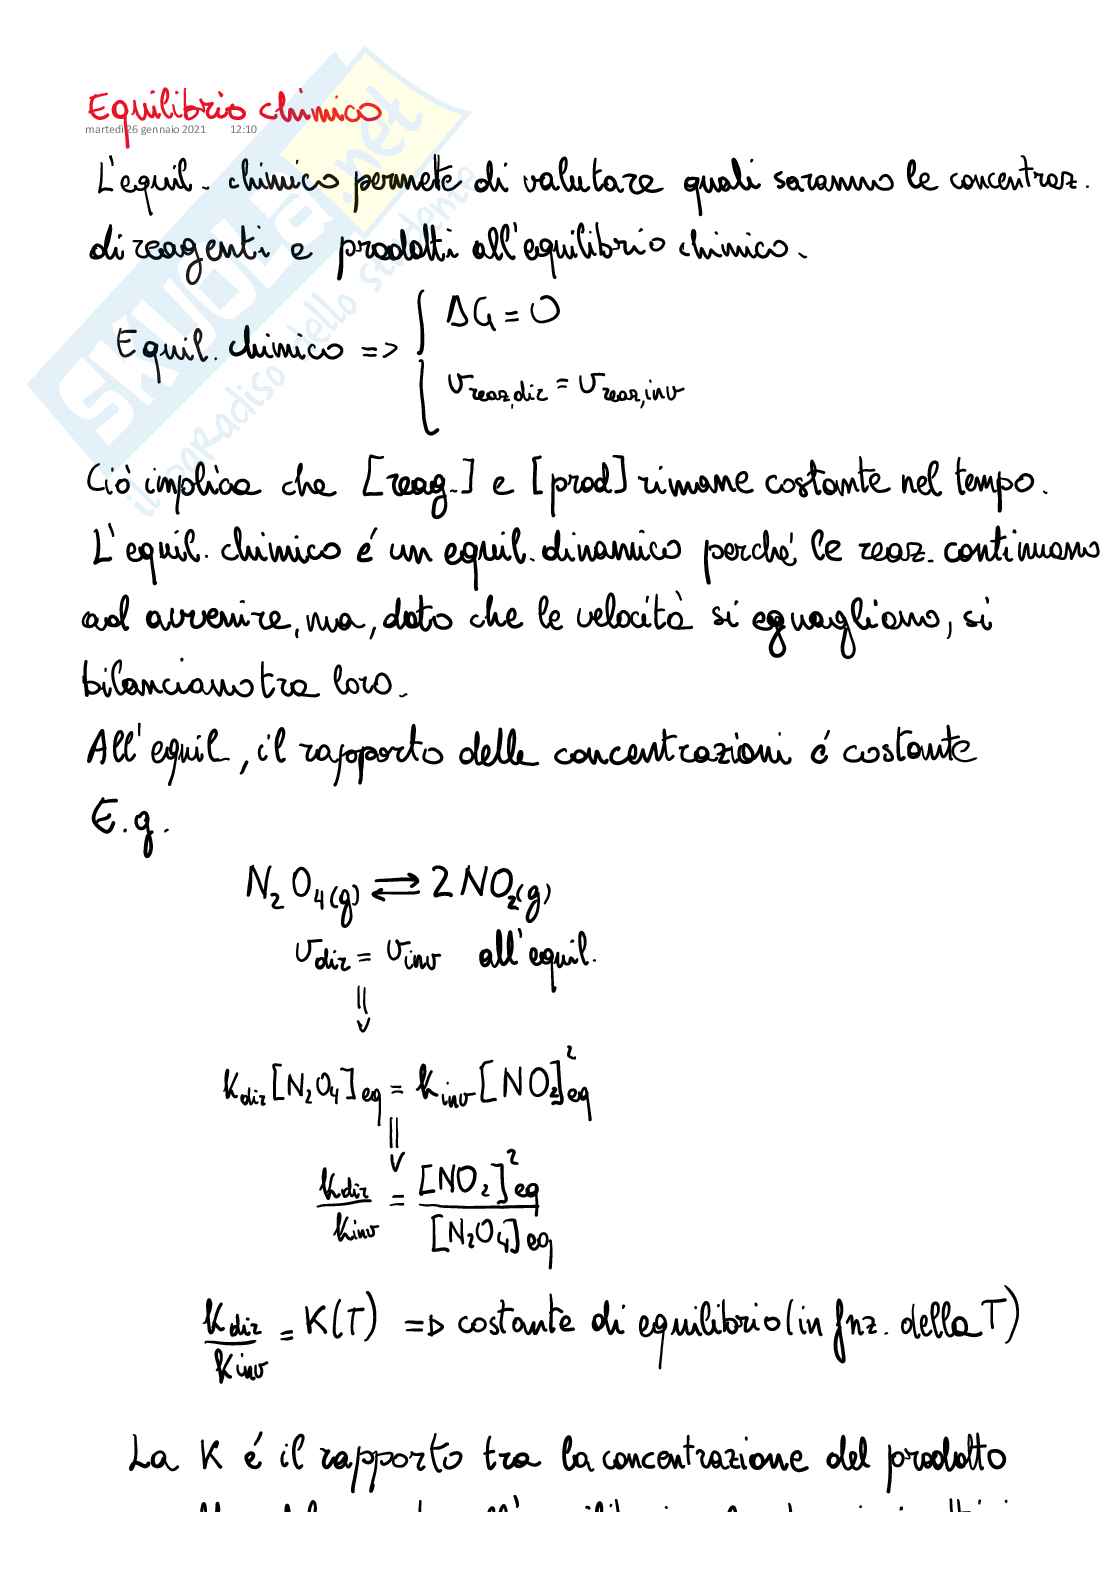 Equilibrio chimico
martedì 26 gennaio 2021 12:10
L'equil. chimico permette di valutare quali saranno le concentraz.
di reagenti e prodotti all'equilibrio chimico.
Equil. chimico => { ΔG = 0
v reaz,dir = v reaz,inv
Ciò implica che [reag.] e [prod] rimane costante nel tempo.
L'equil. chimico é un equil. dinamico perché le reaz. continuano
ad avvenire, ma, dato che le velocità si eguagliano, si
bilanciano tra loro.
All'equil, il rapporto delle concentrazioni é costante
E.g.
N₂O₄(g) ⇌ 2NO₂(g)
v dir = v inv all'equil.
⇓
k dir [N₂O₄]eq = k inv [NO₂]²eq
⇓
k dir / k inv = [NO₂]²eq / [N₂O₄]eq
k dir / k inv = K(T) => costante di equilibrio (in fnz. della T)
La K é il rapporto tra la concentrazione del prodotto
SKUOLA.net
il paradiso dello studente